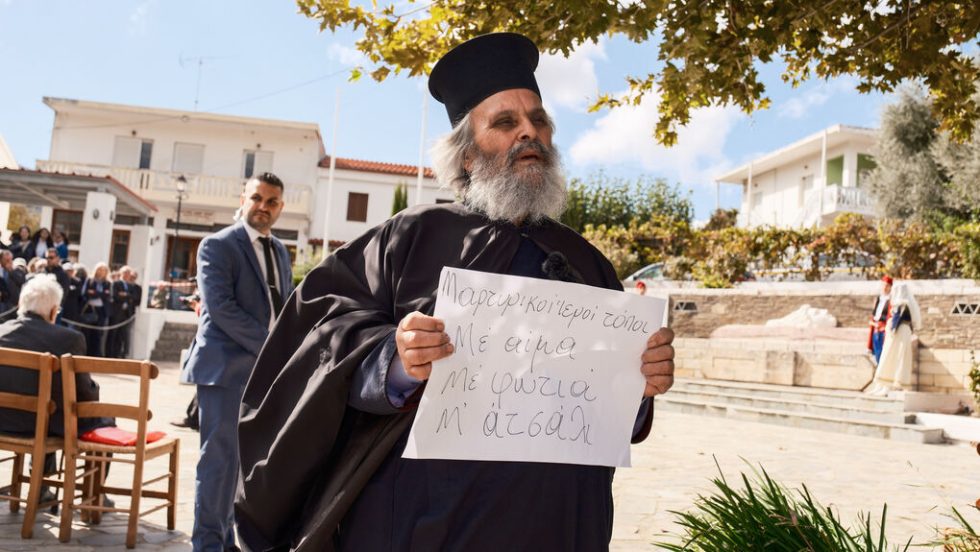 Μαρτυρικοί Ιεροί τόποι
Μέ αίμα
Μέ φωτιά
Μ' άτσάλι